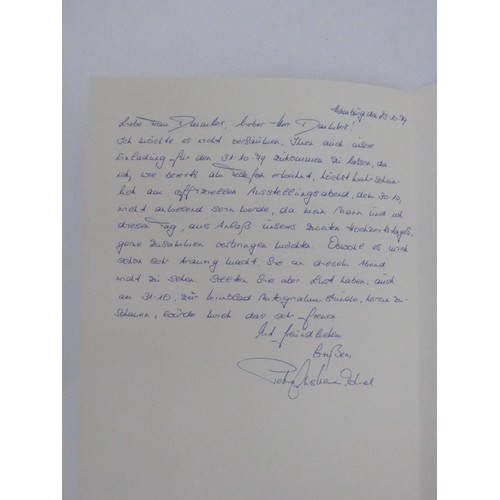 Hamburg, den 20.10.79
Liebe Frau, lieber Herr
Ich möchte es nicht versäumen, Ihnen auch unsere
Einladung für den 31.10.79 zukommen zu lassen, da
ich, wie bereits am Telefon erwähnt, höchstwahrschein-
lich am offiziellen Ausstellungsabend, dem 30.10,
nicht anwesend sein werde, da mein Mann und ich
diesen Tag, aus Anlaß unseres zweiten Hochzeitstages,
ganz zusammen verbringen möchten. Obwohl es mich
schon sehr traurig macht Sie an diesem Abend
nicht zu sehen. Sollten Sie aber Lust haben, auch
am 31.10. zur Autogrammstunde, herein zu-
schauen, würde mich das sehr freuen.
Mit freundlichen
Grüßen